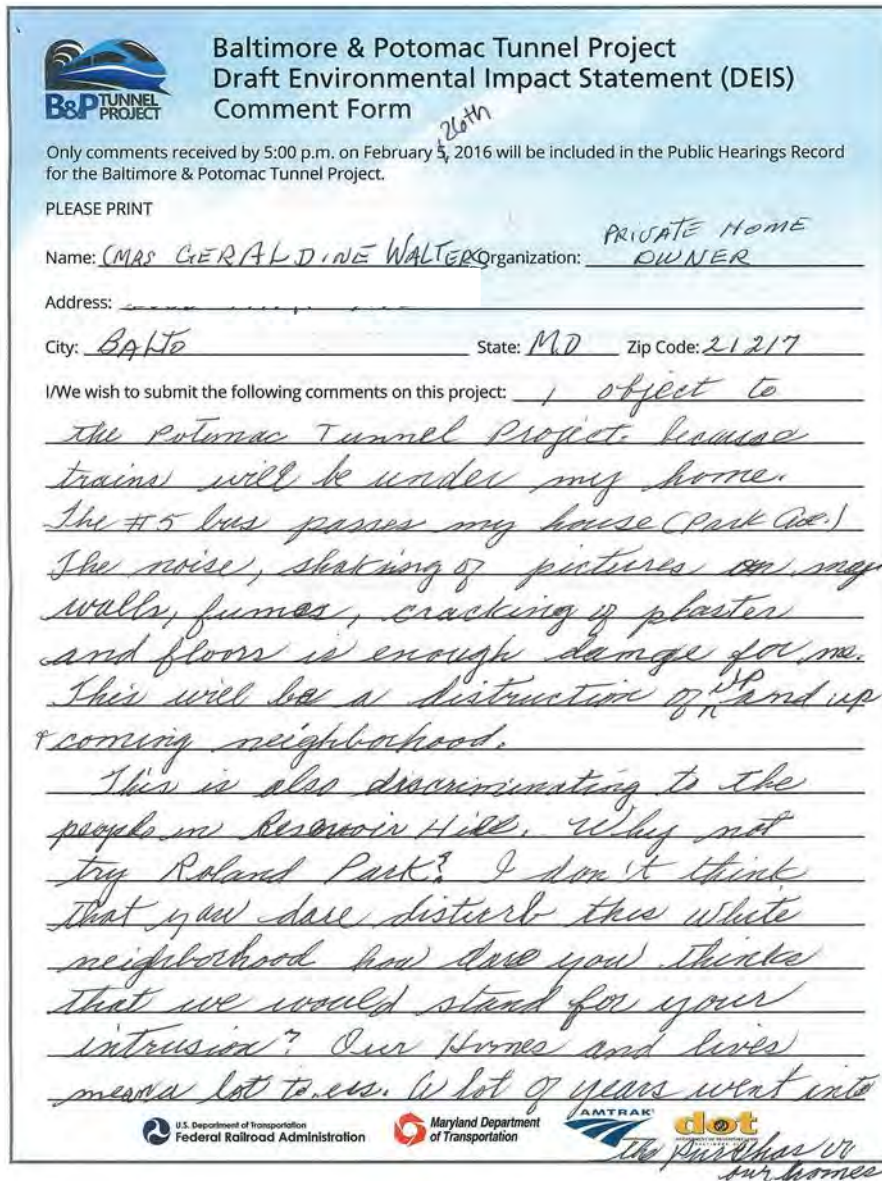 B&P TUNNEL PROJECT
Baltimore & Potomac Tunnel Project
Draft Environmental Impact Statement (DEIS)
Comment Form
26th
Only comments received by 5:00 p.m. on February 5, 2016 will be included in the Public Hearings Record
for the Baltimore & Potomac Tunnel Project.
PLEASE PRINT
PRIVATE HOME
Name: (MRS GERALDINE WALTERS Organization: OWNER
Address:
City: BALTO State: M.D Zip Code: 21217
I/We wish to submit the following comments on this project: I object to
the Potomac Tunnel Project. because
trains will be under my home.
The #5 bus passes my house (Park Ave.)
The noise, shaking of pictures on my
walls, fumes, cracking of plaster
and floors is enough damge for me.
This will be a distruction of up and up
& coming neighborhood.
This is also discriminating to the
people in Reservoir Hill. Why not
try Roland Park? I don't think
that you dare disturb this white
neighborhood how dare you thinks
that we would stand for your
intrusion? Our Homes and lives
mean a lot to us. A lot of years went into
the purchas
our homes
U.S. Department of Transportation
Federal Railroad Administration
Maryland Department
of Transportation
AMTRAK
dot